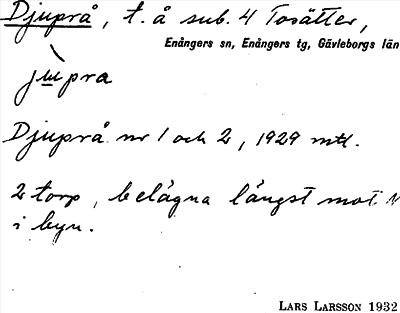 Djuprå, t. å sub. 4 Tosätter,
Enångers sn, Enångers tg, Gävleborgs län
jupra
Djuprå nr 1 och 2, 1929 mtl.
2 torp, belägna längst mot N
i byn.
LARS LARSSON 1932